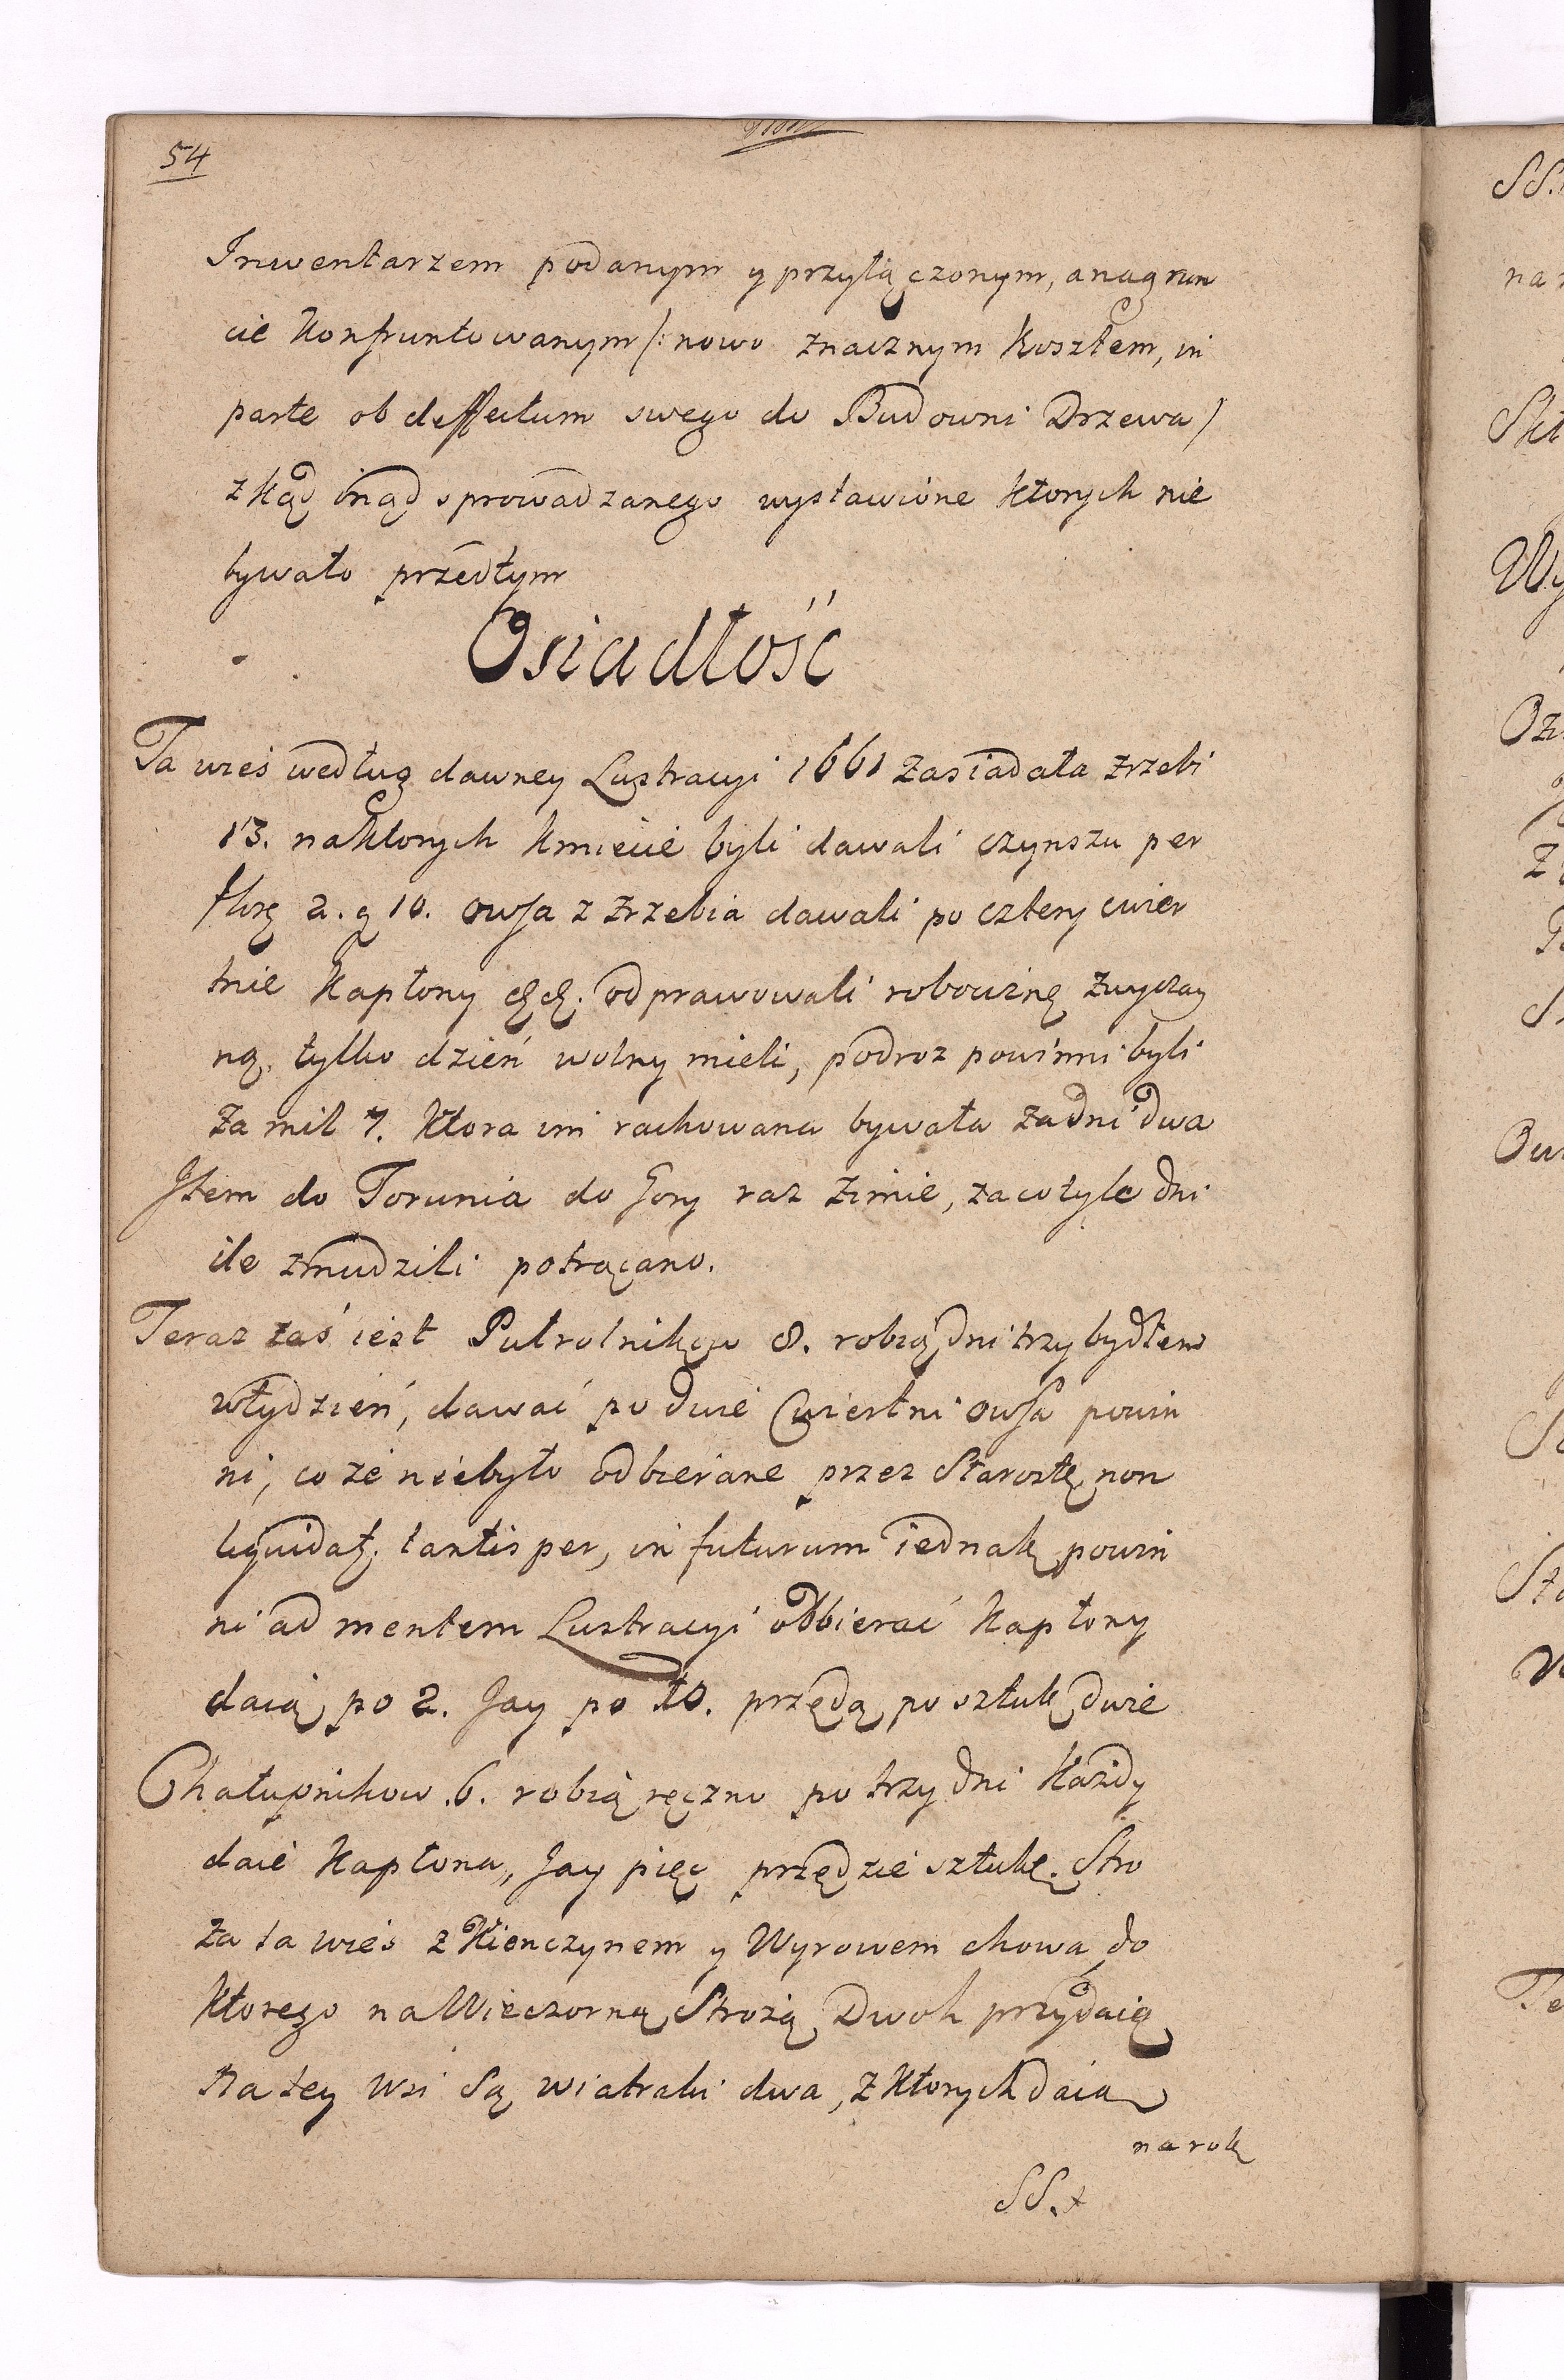 54
Inwentarzem podanym y przyłączonym, anagrun
cie Konfruntowanym /: nowo znacznym Kosztem, in
parte ob deffectum swego do Budowni Drzewa /
zkąd inąd sprowadzanego wystawione ktorych nie
bywało przedtym
Osiadłość
Ta wieś według dawney Lustracyi 1661 zasiadała zrzebi
13. naktorych Kmiecie byli dawali czynszu per
flor. 2. g 10. owsa z zrzebia dawali po cztery cwier
tnie Kapłony &c. odprawowali robociznę zwyczay
ną, tylko dzień wolny mieli, podroz powinni byli
za mil 7. Ktora im rachowana bywała zadni dwa
Jtem do Torunia do Gory raz zimie, zacotyle dni
ile zmudzili potrącano.
Teraz zaś iest Pułrolnikow 8. robią dni trzy bydłem
wtydzień, dawać po dwie Cwiertni owsa powin
ni, co że niebyło odbierane przez Starostę non
liquidat. tantisper, in futurum iednak powin
ni ad mentem Lustracyi odbierać Kapłony
daią po 2. Jay po 10. przędą po sztuk dwie
Chałupnikow .6. robią ręczno po trzy dni Każdy
daie Kapłona, Jay pięc przędzie sztukę. Stro
za ta wieś z Kienczynem y Wyrowem chowa, do
Ktorego na Wieczorną Strożą Dwoh przydaią
Na tey Wsi Są wiatraki dwa, z Ktorych daią
na rok
SS.